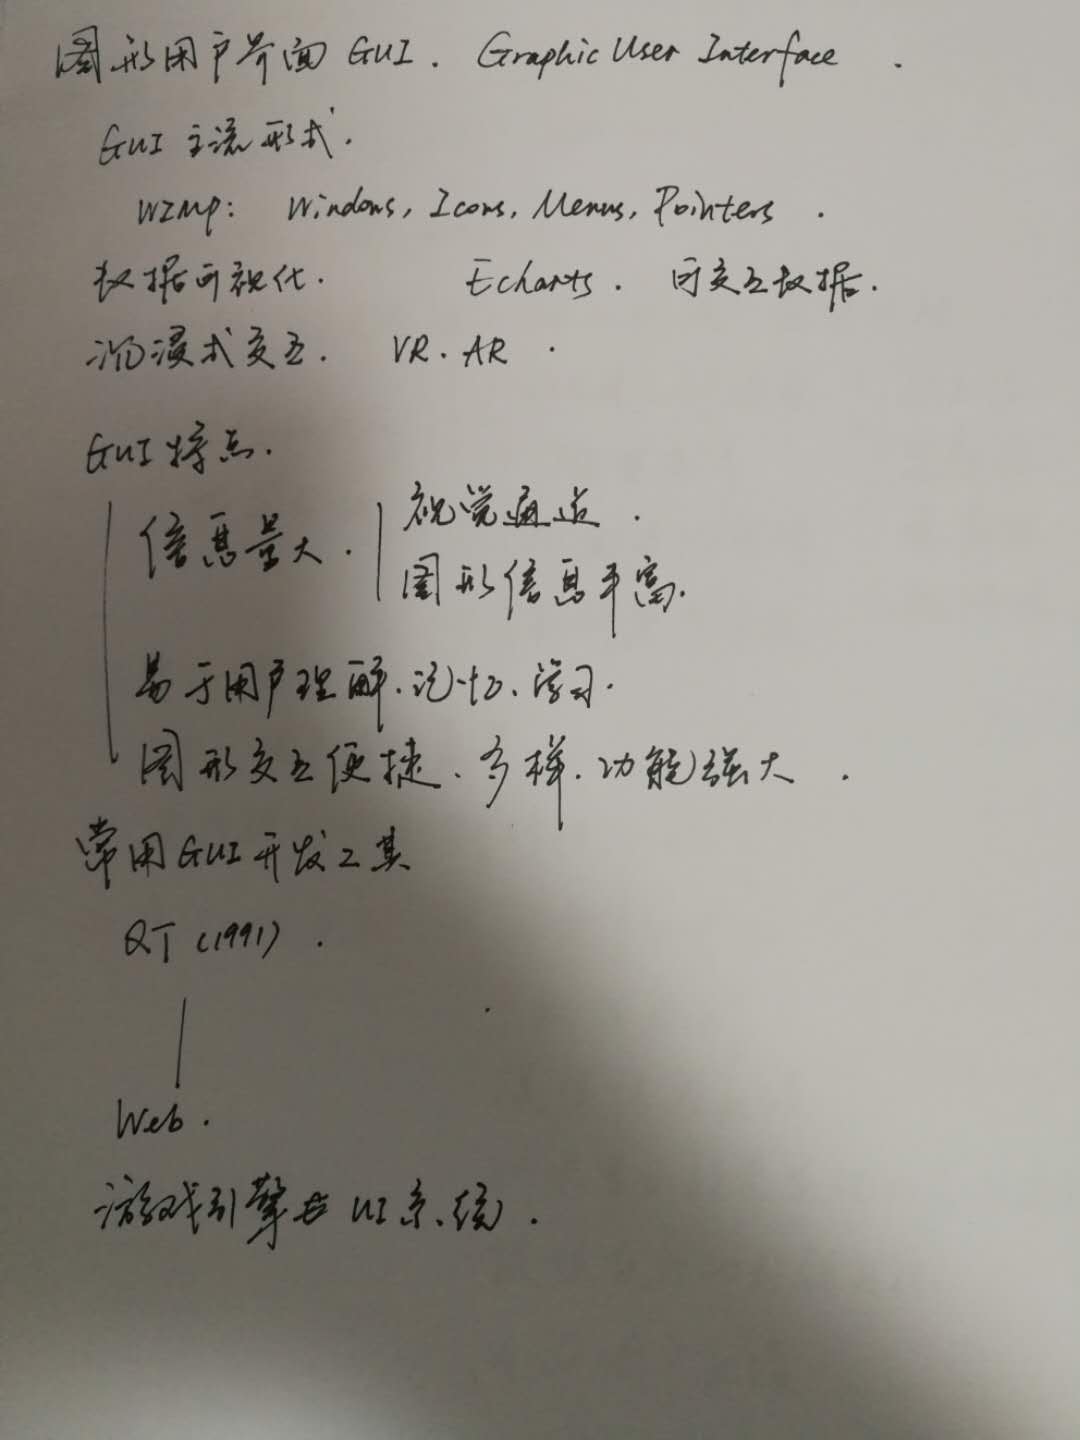 图形用户界面 GUI. Graphic User Interface .
GUI 主流形式.
WIMP: Windows, Icons, Menus, Pointers .
数据可视化. Echarts. 可交互数据.
沉浸式交互. VR. AR .
GUI 特点.
信息量大. 视觉通道 .
图形信息丰富.
易于用户理解、记忆、学习.
图形交互便捷、多样、功能强大 .
常用GUI开发工具
QT (1991) .
Web .
游戏引擎 UI系统 .